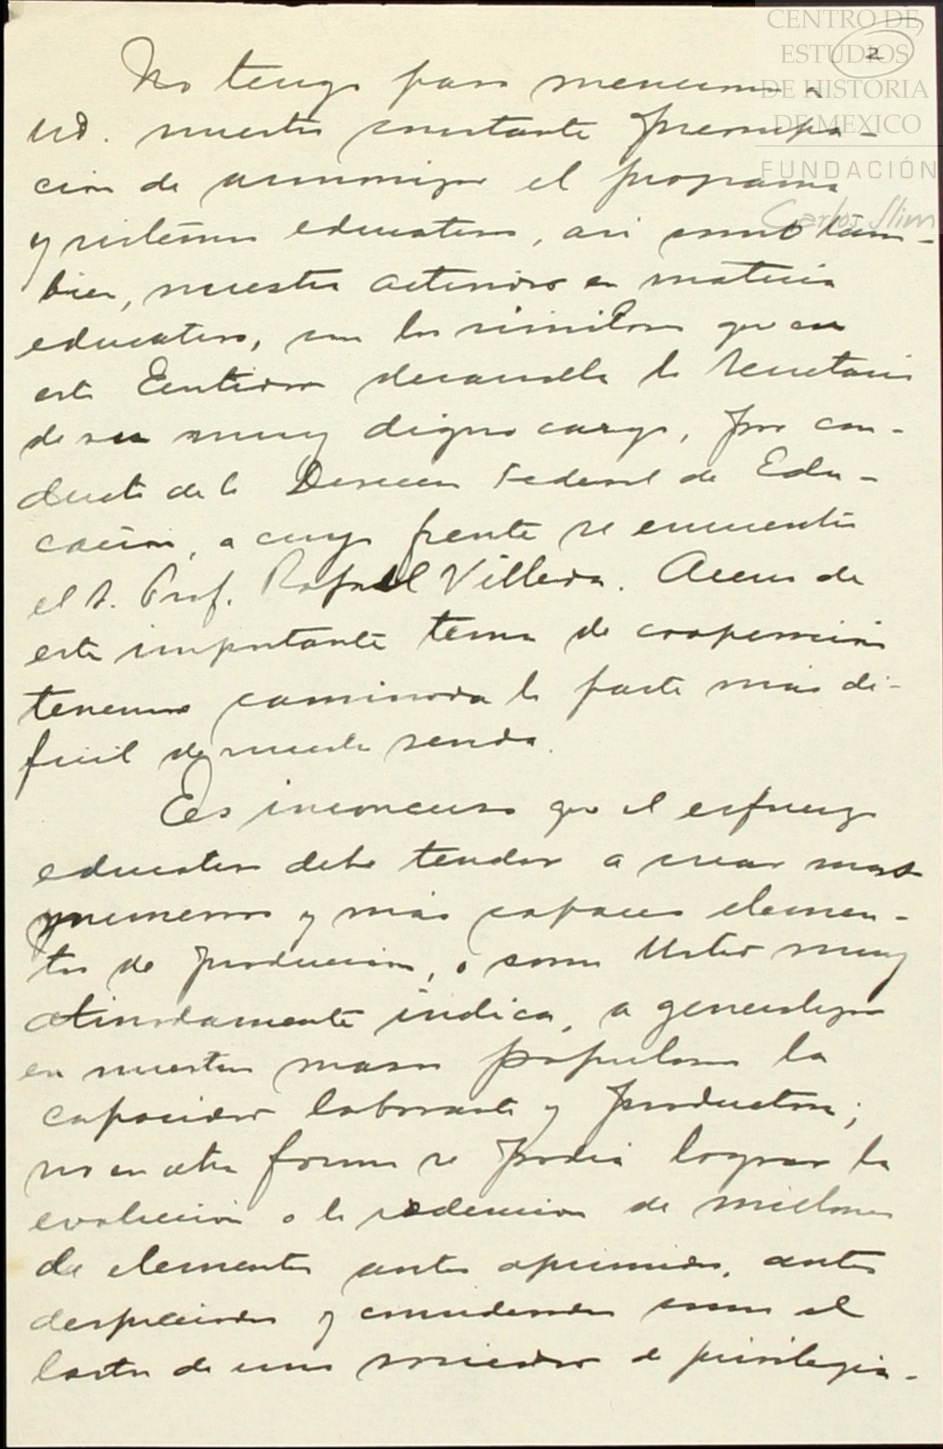 CENTRO DE
ESTUDIOS
DE HISTORIA
DE MEXICO
FUNDACIÓN
Carlos Slim
2
No tengo para mencionar a
Ud. nuestra constante preocupa-
ción de armonizar el programa
y sistema educativo, asi como tam-
bien, nuestra actividad en materia
educativa, con los similares que en
esta Entidad desarrolla la Secretaria
de su muy digno cargo, por con-
ducto de la Dirección Federal de Edu-
cación, a cuyo frente se encuentra
el S. Prof. Rafael Villeda. Acerca de
este importante tema de cooperación
tenemos caminada la parte más di-
ficil de nuestra senda.
Es inconcuso que el esfuerzo
educativo debe tender a crear mas
numerosos y más capaces elemen-
tos de producción, o como Usted muy
atinadamente indica, a generalizar
en nuestras masas populares la
capacidad laborante y productora;
no en otra forma se podia lograr la
evolución o la redencion de millones
de elementos antes oprimidos, antes
despreciados y considerados como el
lastre de una sociedad de privilegia-